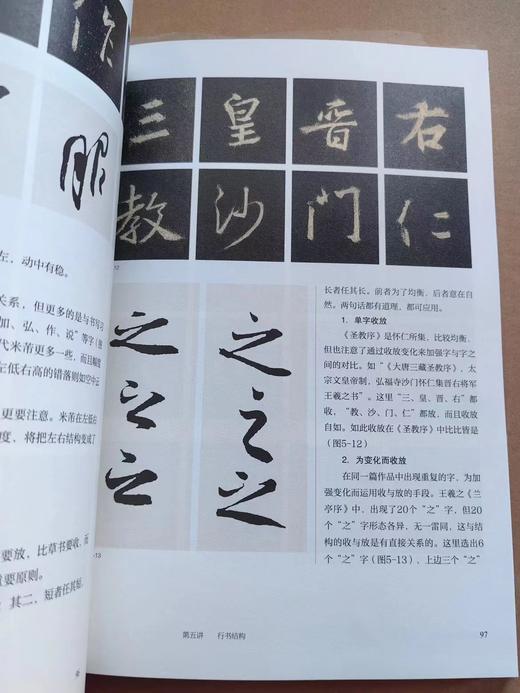 作
服
左,动中有稳。
关系,但更多的是与书写习
加、弘、作、说”等字(图
代米芾更多一些,而且幅度
左低右高的错落则如空中云
更要注意。米芾在左低右
度,将把左右结构变成了
要放,比草书要收,而
重要原则。
其二,短者任其短,
三 皇 晋 右
教 沙 门 仁
12
之 之
之 之
之 之
-13
长者任其长。前者为了均衡,后者意在自
然。两句话都有道理,都可应用。
1. 单字收放
《圣教序》是怀仁所集,比较均衡,
但也注意了通过收放变化来加强字与字之
间的对比。如“《大唐三藏圣教序》,太
宗文皇帝制,弘福寺沙门怀仁集晋右将军
王羲之书”。这里“三、皇、晋、右”都
收,“教、沙、门、仁”都放,而且收放
自如。如此收放在《圣教序》中比比皆是
(图5-12)
2. 为变化而收放
在同一篇作品中出现重复的字,为加
强变化而运用收与放的手段。王羲之《兰
亭序》中,出现了20个“之”字,但20
个“之”字形态各异,无一雷同,这与结
构的收与放是有直接关系的。这里选出6
个“之”字(图5-13),上边三个“之”
第五讲 行书结构
97